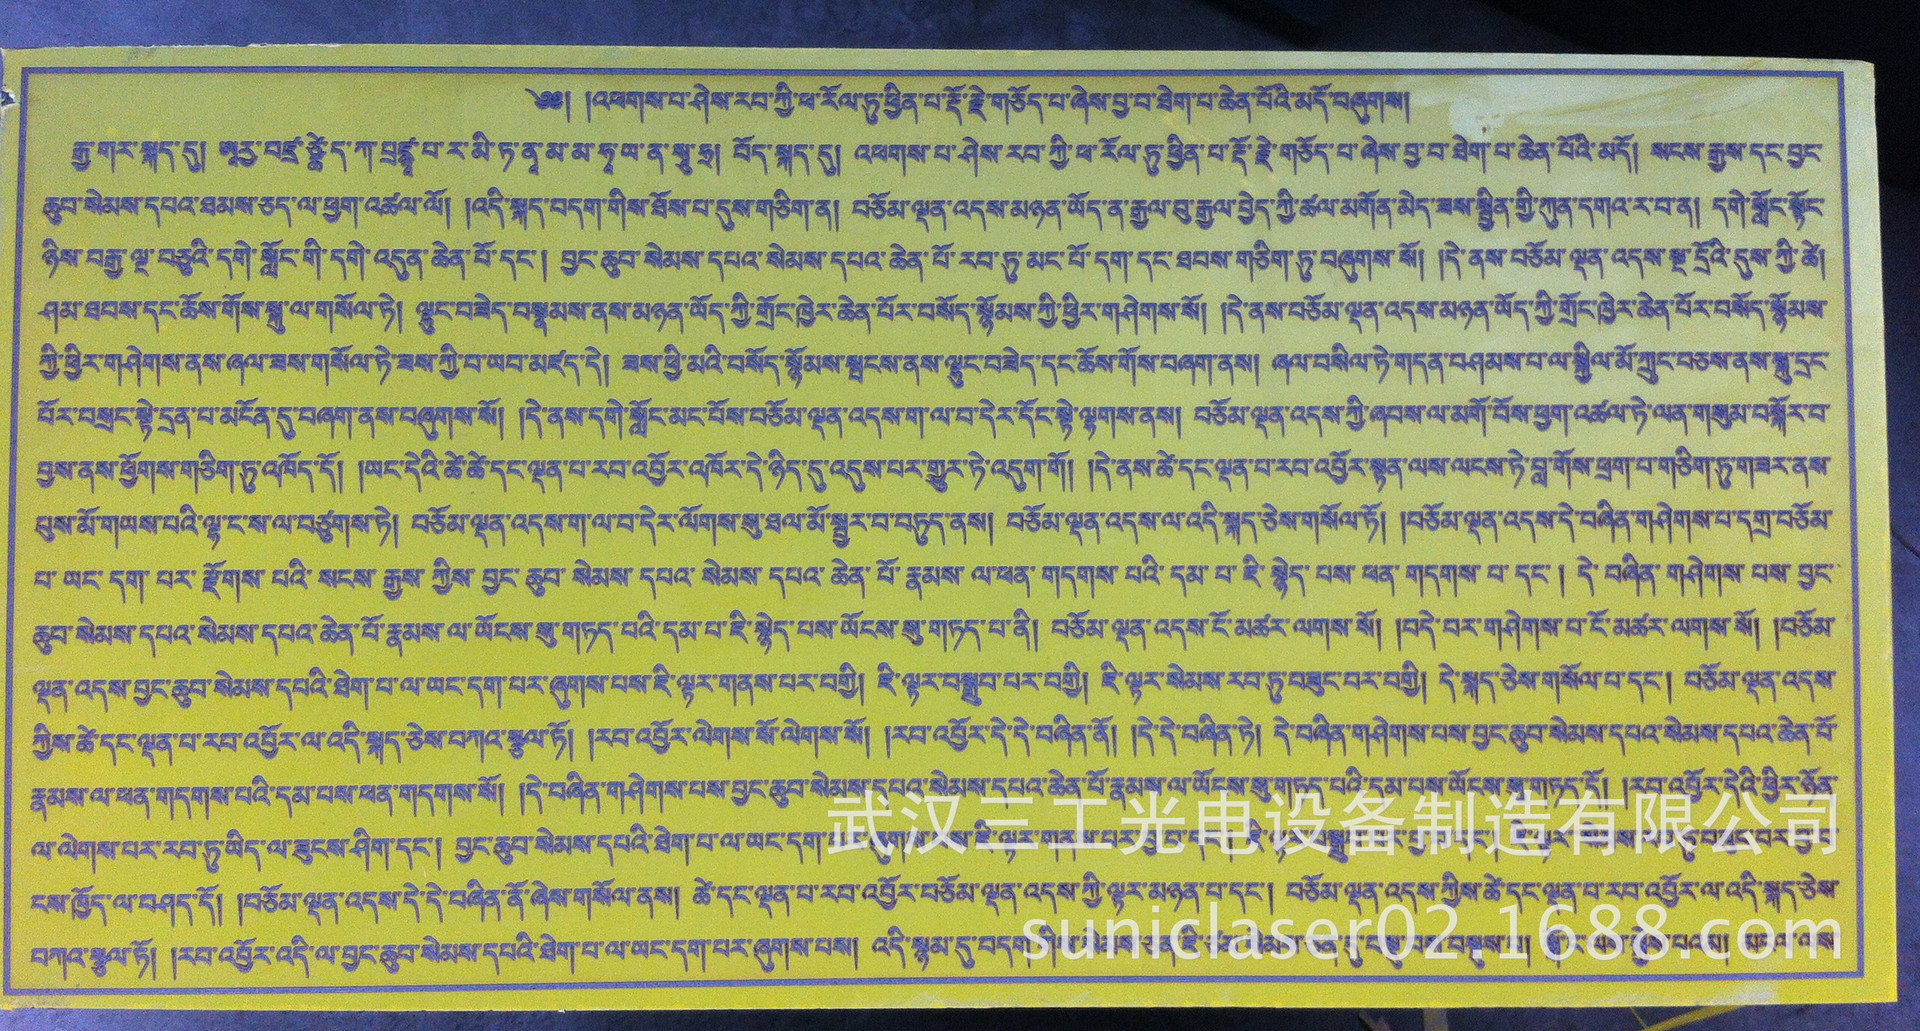 ༄༅། །འཕགས་པ་ཤེས་རབ་ཀྱི་ཕ་རོལ་ཏུ་ཕྱིན་པ་རྡོ་རྗེ་གཅོད་པ་ཞེས་བྱ་བ་ཐེག་པ་ཆེན་པོའི་མདོ་བཞུགས།
རྒྱ་གར་སྐད་དུ། བོད་སྐད་དུ། འཕགས་པ་ཤེས་རབ་ཀྱི་ཕ་རོལ་ཏུ་ཕྱིན་པ་རྡོ་རྗེ་གཅོད་པ་ཞེས་བྱ་བ་ཐེག་པ་ཆེན་པོའི་མདོ། སངས་རྒྱས་དང་བྱང་
ཆུབ་སེམས་དཔའ་ཐམས་ཅད་ལ་ཕྱག་འཚལ་ལོ། །འདི་སྐད་བདག་གིས་ཐོས་པ་དུས་གཅིག་ན། བཅོམ་ལྡན་འདས་མཉན་ཡོད་ན་རྒྱལ་བུ་རྒྱལ་བྱེད་ཀྱི་ཚལ་མགོན་མེད་ཟས་སྦྱིན་གྱི་ཀུན་དགའ་ར་བ་ན། དགེ་སློང་སྟོང་
ཉིས་བརྒྱ་ལྔ་བཅུའི་དགེ་སློང་གི་དགེ་འདུན་ཆེན་པོ་དང་། བྱང་ཆུབ་སེམས་དཔའ་སེམས་དཔའ་ཆེན་པོ་རབ་ཏུ་མང་པོ་དག་དང་ཐབས་གཅིག་ཏུ་བཞུགས་སོ། །དེ་ནས་བཅོམ་ལྡན་འདས་སྔ་དྲོའི་དུས་ཀྱི་ཚེ།
ཤམ་ཐབས་དང་ཆོས་གོས་སྐུ་ལ་གསོལ་ཏེ། ལྷུང་བཟེད་བསྣམས་ནས་མཉན་ཡོད་ཀྱི་གྲོང་ཁྱེར་ཆེན་པོར་བསོད་སྙོམས་ཀྱི་ཕྱིར་གཤེགས་སོ། །དེ་ནས་བཅོམ་ལྡན་འདས་མཉན་ཡོད་ཀྱི་གྲོང་ཁྱེར་ཆེན་པོར་བསོད་སྙོམས་
ཀྱི་ཕྱིར་གཤེགས་ནས་ཞལ་ཟས་གསོལ་ཏེ་ཟས་ཀྱི་བ་ཡབ་མཛད་དེ། ཟས་ཕྱི་མའི་བསོད་སྙོམས་སྤངས་ནས་ལྷུང་བཟེད་དང་ཆོས་གོས་བཞག་ནས། ཞལ་བསིལ་ཏེ་གདན་བཤམས་པ་ལ་སྐྱིལ་མོ་ཀྲུང་བཅས་ནས་སྐུ་དྲང་
པོར་བསྲང་སྟེ་དྲན་པ་མངོན་དུ་བཞག་ནས་བཞུགས་སོ། །དེ་ནས་དགེ་སློང་མང་པོས་བཅོམ་ལྡན་འདས་ག་ལ་བ་དེར་དོང་སྟེ་ལྷགས་ནས། བཅོམ་ལྡན་འདས་ཀྱི་ཞབས་ལ་མགོ་བོས་ཕྱག་འཚལ་ཏེ་ལན་གསུམ་བསྐོར་བ་
བྱས་ནས་ཕྱོགས་གཅིག་ཏུ་འཁོད་དོ། །ཡང་དེའི་ཚེ་ཚེ་དང་ལྡན་པ་རབ་འབྱོར་འཁོར་དེ་ཉིད་དུ་འདུས་པར་གྱུར་ཏེ་འདུག་གོ། །དེ་ནས་ཚེ་དང་ལྡན་པ་རབ་འབྱོར་སྟན་ལས་ལངས་ཏེ་བླ་གོས་ཕྲག་པ་གཅིག་ཏུ་གཟར་ནས་
པུས་མོ་གཡས་པའི་ལྷ་ང་ས་ལ་བཙུགས་ཏེ། བཅོམ་ལྡན་འདས་ག་ལ་བ་དེར་ལོགས་སུ་ཐལ་མོ་སྦྱར་བ་བཏུད་ནས། བཅོམ་ལྡན་འདས་ལ་འདི་སྐད་ཅེས་གསོལ་ཏོ། །བཅོམ་ལྡན་འདས་དེ་བཞིན་གཤེགས་པ་དགྲ་བཅོམ་
པ་ཡང་དག་པར་རྫོགས་པའི་སངས་རྒྱས་ཀྱིས་བྱང་ཆུབ་སེམས་དཔའ་སེམས་དཔའ་ཆེན་པོ་རྣམས་ལ་ཕན་གདགས་པའི་དམ་པ་ཇི་སྙེད་པས་ཕན་གདགས་པ་དང་། དེ་བཞིན་གཤེགས་པས་བྱང་
ཆུབ་སེམས་དཔའ་སེམས་དཔའ་ཆེན་པོ་རྣམས་ལ་ཡོངས་སུ་གཏད་པའི་དམ་པ་ཇི་སྙེད་པས་ཡོངས་སུ་གཏད་པ་ནི། བཅོམ་ལྡན་འདས་ངོ་མཚར་ལགས་སོ། །བདེ་བར་གཤེགས་པ་ངོ་མཚར་ལགས་སོ། །བཅོམ་
ལྡན་འདས་བྱང་ཆུབ་སེམས་དཔའི་ཐེག་པ་ལ་ཡང་དག་པར་ཞུགས་པས་ཇི་ལྟར་གནས་པར་བགྱི། ཇི་ལྟར་བསྒྲུབ་པར་བགྱི། ཇི་ལྟར་སེམས་རབ་ཏུ་བཟུང་བར་བགྱི། དེ་སྐད་ཅེས་གསོལ་པ་དང་། བཅོམ་ལྡན་འདས་
ཀྱིས་ཚེ་དང་ལྡན་པ་རབ་འབྱོར་ལ་འདི་སྐད་ཅེས་བཀའ་སྩལ་ཏོ། །རབ་འབྱོར་ལེགས་སོ་ལེགས་སོ། །རབ་འབྱོར་དེ་དེ་བཞིན་ནོ། །དེ་དེ་བཞིན་ཏེ། དེ་བཞིན་གཤེགས་པས་བྱང་ཆུབ་སེམས་དཔའ་སེམས་དཔའ་ཆེན་པོ་
རྣམས་ལ་ཕན་གདགས་པའི་དམ་པས་ཕན་གདགས་སོ། །དེ་བཞིན་གཤེགས་པས་བྱང་ཆུབ་སེམས་དཔའ་སེམས་དཔའ་ཆེན་པོ་རྣམས་ལ་ཡོངས་སུ་གཏད་པའི་དམ་པས་ཡོངས་སུ་གཏད་དོ། །རབ་འབྱོར་དེའི་ཕྱིར་ཉོན་
ལ་ལེགས་པར་རབ་ཏུ་ཡིད་ལ་ཟུངས་ཤིག་དང་། བྱང་ཆུབ་སེམས་དཔའི་ཐེག་པ་ལ་ཡང་དག་པར་ཞུགས་པས་ཇི་ལྟར་གནས་པར་བྱ་བ་དང་།
ངས་ཁྱོད་ལ་བཤད་དོ། །བཅོམ་ལྡན་འདས་དེ་དེ་བཞིན་ནོ་ཞེས་གསོལ་ནས། ཚེ་དང་ལྡན་པ་རབ་འབྱོར་བཅོམ་ལྡན་འདས་ཀྱི་ལྟར་མཉན་པ་དང་། བཅོམ་ལྡན་འདས་ཀྱིས་ཚེ་དང་ལྡན་པ་རབ་འབྱོར་ལ་འདི་སྐད་ཅེས་
བཀའ་སྩལ་ཏོ། །རབ་འབྱོར་འདི་ལ་བྱང་ཆུབ་སེམས་དཔའི་ཐེག་པ་ལ་ཡང་དག་པར་ཞུགས་པས། འདི་སྙམ་དུ་བདག་གིས་
武汉三工光电设备制造有限公司
suniclaser02.1688.com